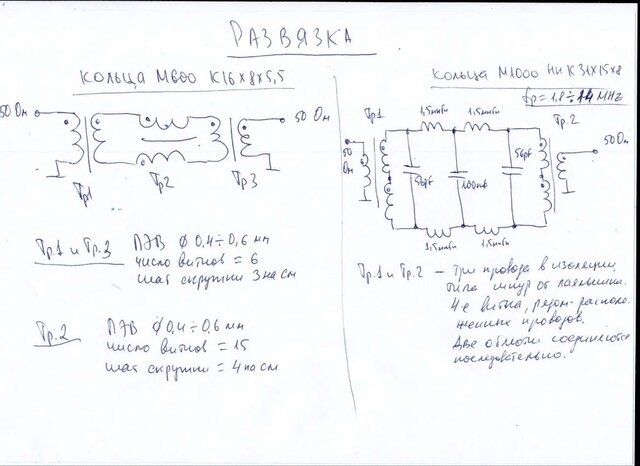 РАЗВЯЗКА
КОЛЬЦА М600 К16×8×5,5
50 Ом
50 Ом
Тр1
Тр2
Тр3
Тр.1 и Тр.3 ПЭВ ϕ 0,4÷0,6 мм
число витков = 6
шаг скрутки 3 на см
Тр.2 ПЭВ ϕ 0,4÷0,6 мм
число витков = 15
шаг скрутки = 4 на см
КОЛЬЦА М1000 НН К31×15×8
fр = 1,8÷14 MHz
Тр1
1,5мкГн
1,5мкГн
Тр.2
50 Ом
50 Ом
56pf
100пф
56pf
1,5мкГн
1,5мкГн
Тр.1 и Тр.2 – Три провода в изоляции,
типа шнур от паяльника.
4-е витка, рядом-располо-
женных проводов.
Две обмотки соединяются
последовательно.